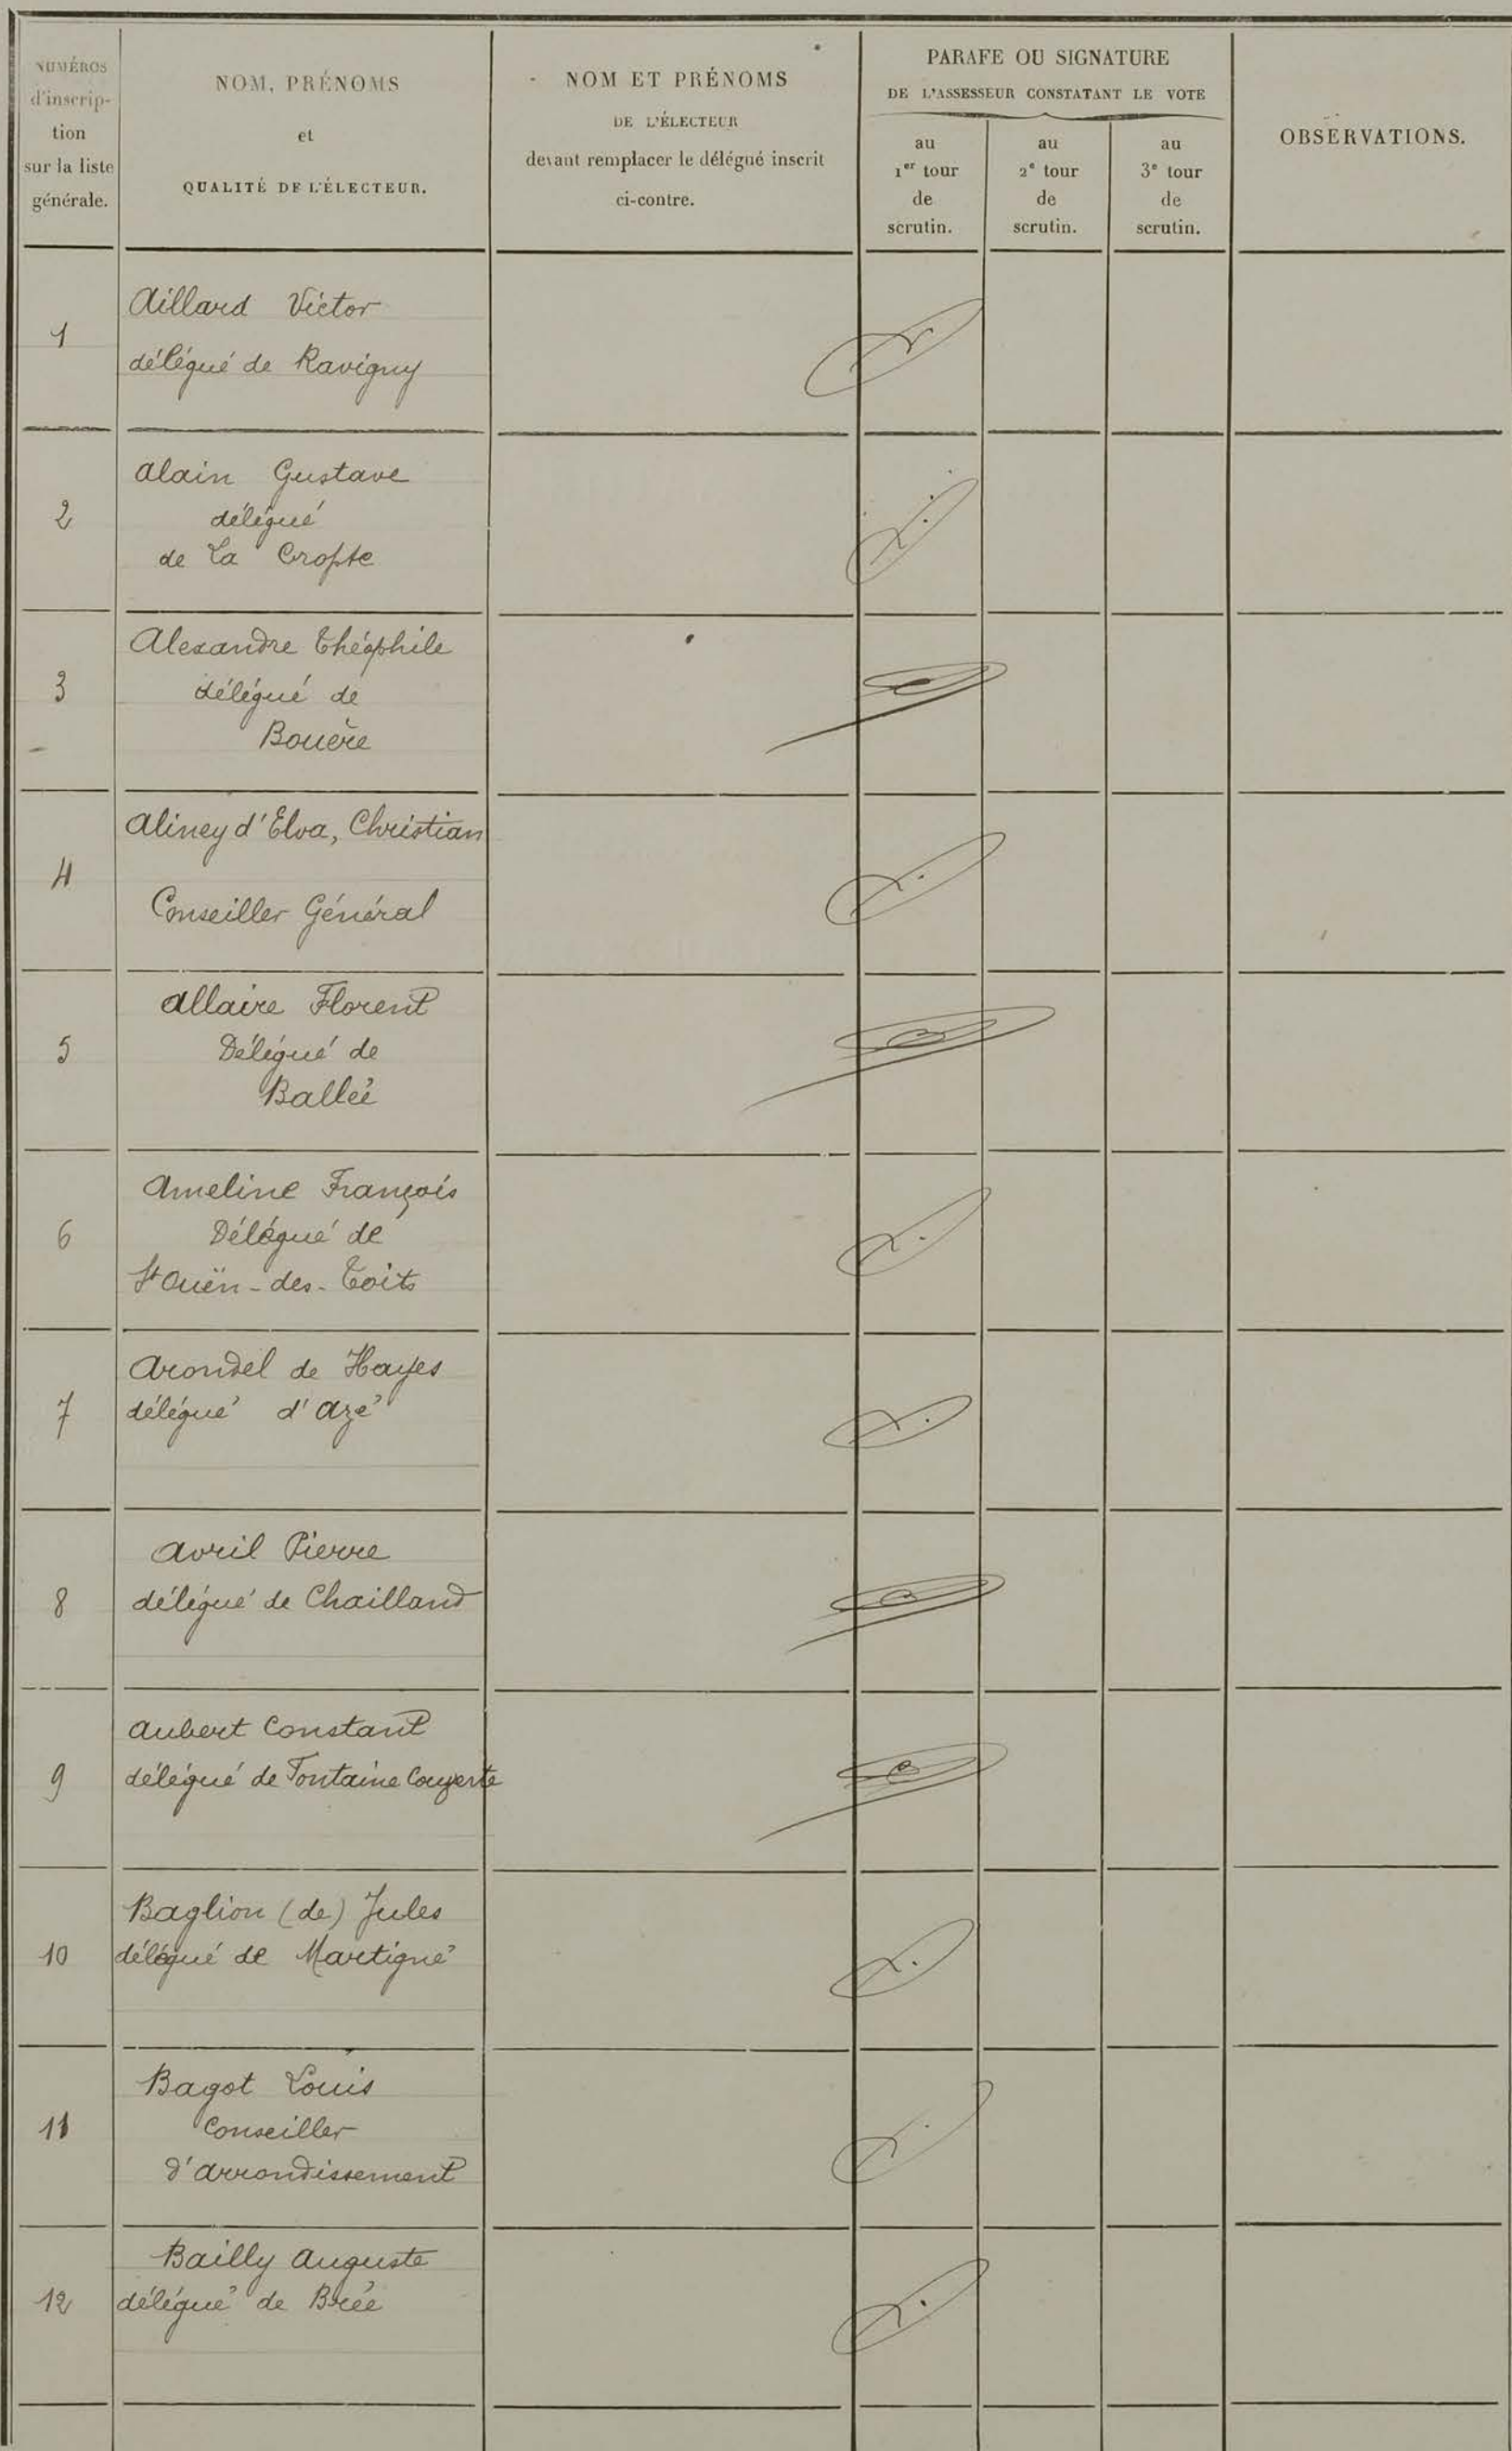 NUMÉROS
d'inscrip-
tion
sur la liste
générale.
NOM, PRÉNOMS
et
QUALITÉ DE L'ÉLECTEUR.
NOM ET PRÉNOMS
DE L'ÉLECTEUR
devant remplacer le délégué inscrit
ci-contre.
PARAFE OU SIGNATURE
DE L'ASSESSEUR CONSTATANT LE VOTE
au
1er tour
de
scrutin.
au
2e tour
de
scrutin.
au
3e tour
de
scrutin.
OBSERVATIONS.
1
Aillard Victor
délégué de Ravigny
2
Alain Gustave
délégué
de La Cropte
3
Alexandre Théophile
délégué de
Bouère
4
Aliney d'Elva, Christian
Conseiller Général
5
Allaire Florent
Délégué de
Ballée
6
Ameline François
Délégué de
St Ouën-des-Toits
7
Arondel de Hayes
délégué d'Azé
8
Avril Pierre
délégué de Chailland
9
Aubert Constant
délégué de Fontaine Couverte
10
Baglion (de) Jules
délégué de Martigné
11
Bagot Louis
Conseiller
d'arrondissement
12
Bailly Auguste
délégué de Brée